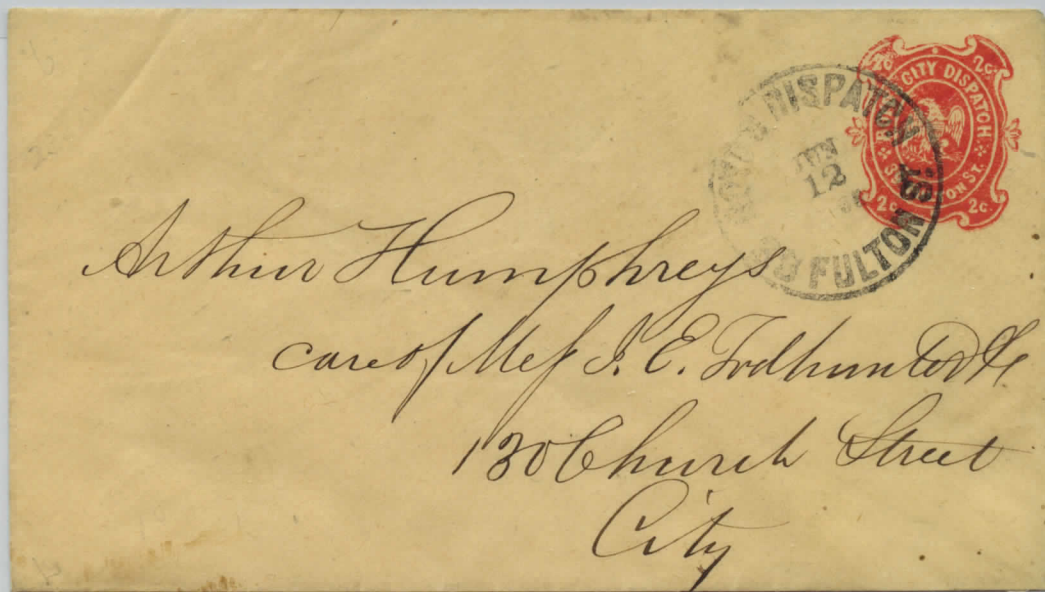 2c. 2c.
BOYD'S CITY DISPATCH
39 FULTON ST.
2c. 2c.
BOYD'S DISPATCH
JUN
12
39 FULTON ST.
Arthur Humphreys
care of Mess J. E. Todhunter &
130 Church Street
City